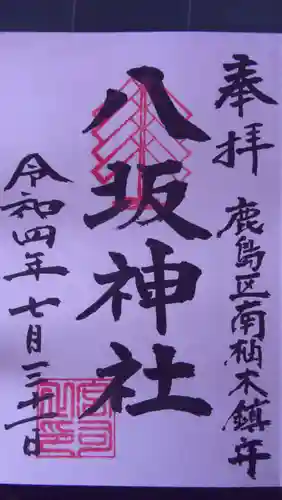 奉拝
鹿島区南柚木鎮座
八坂神社
令和四年七月三十一日